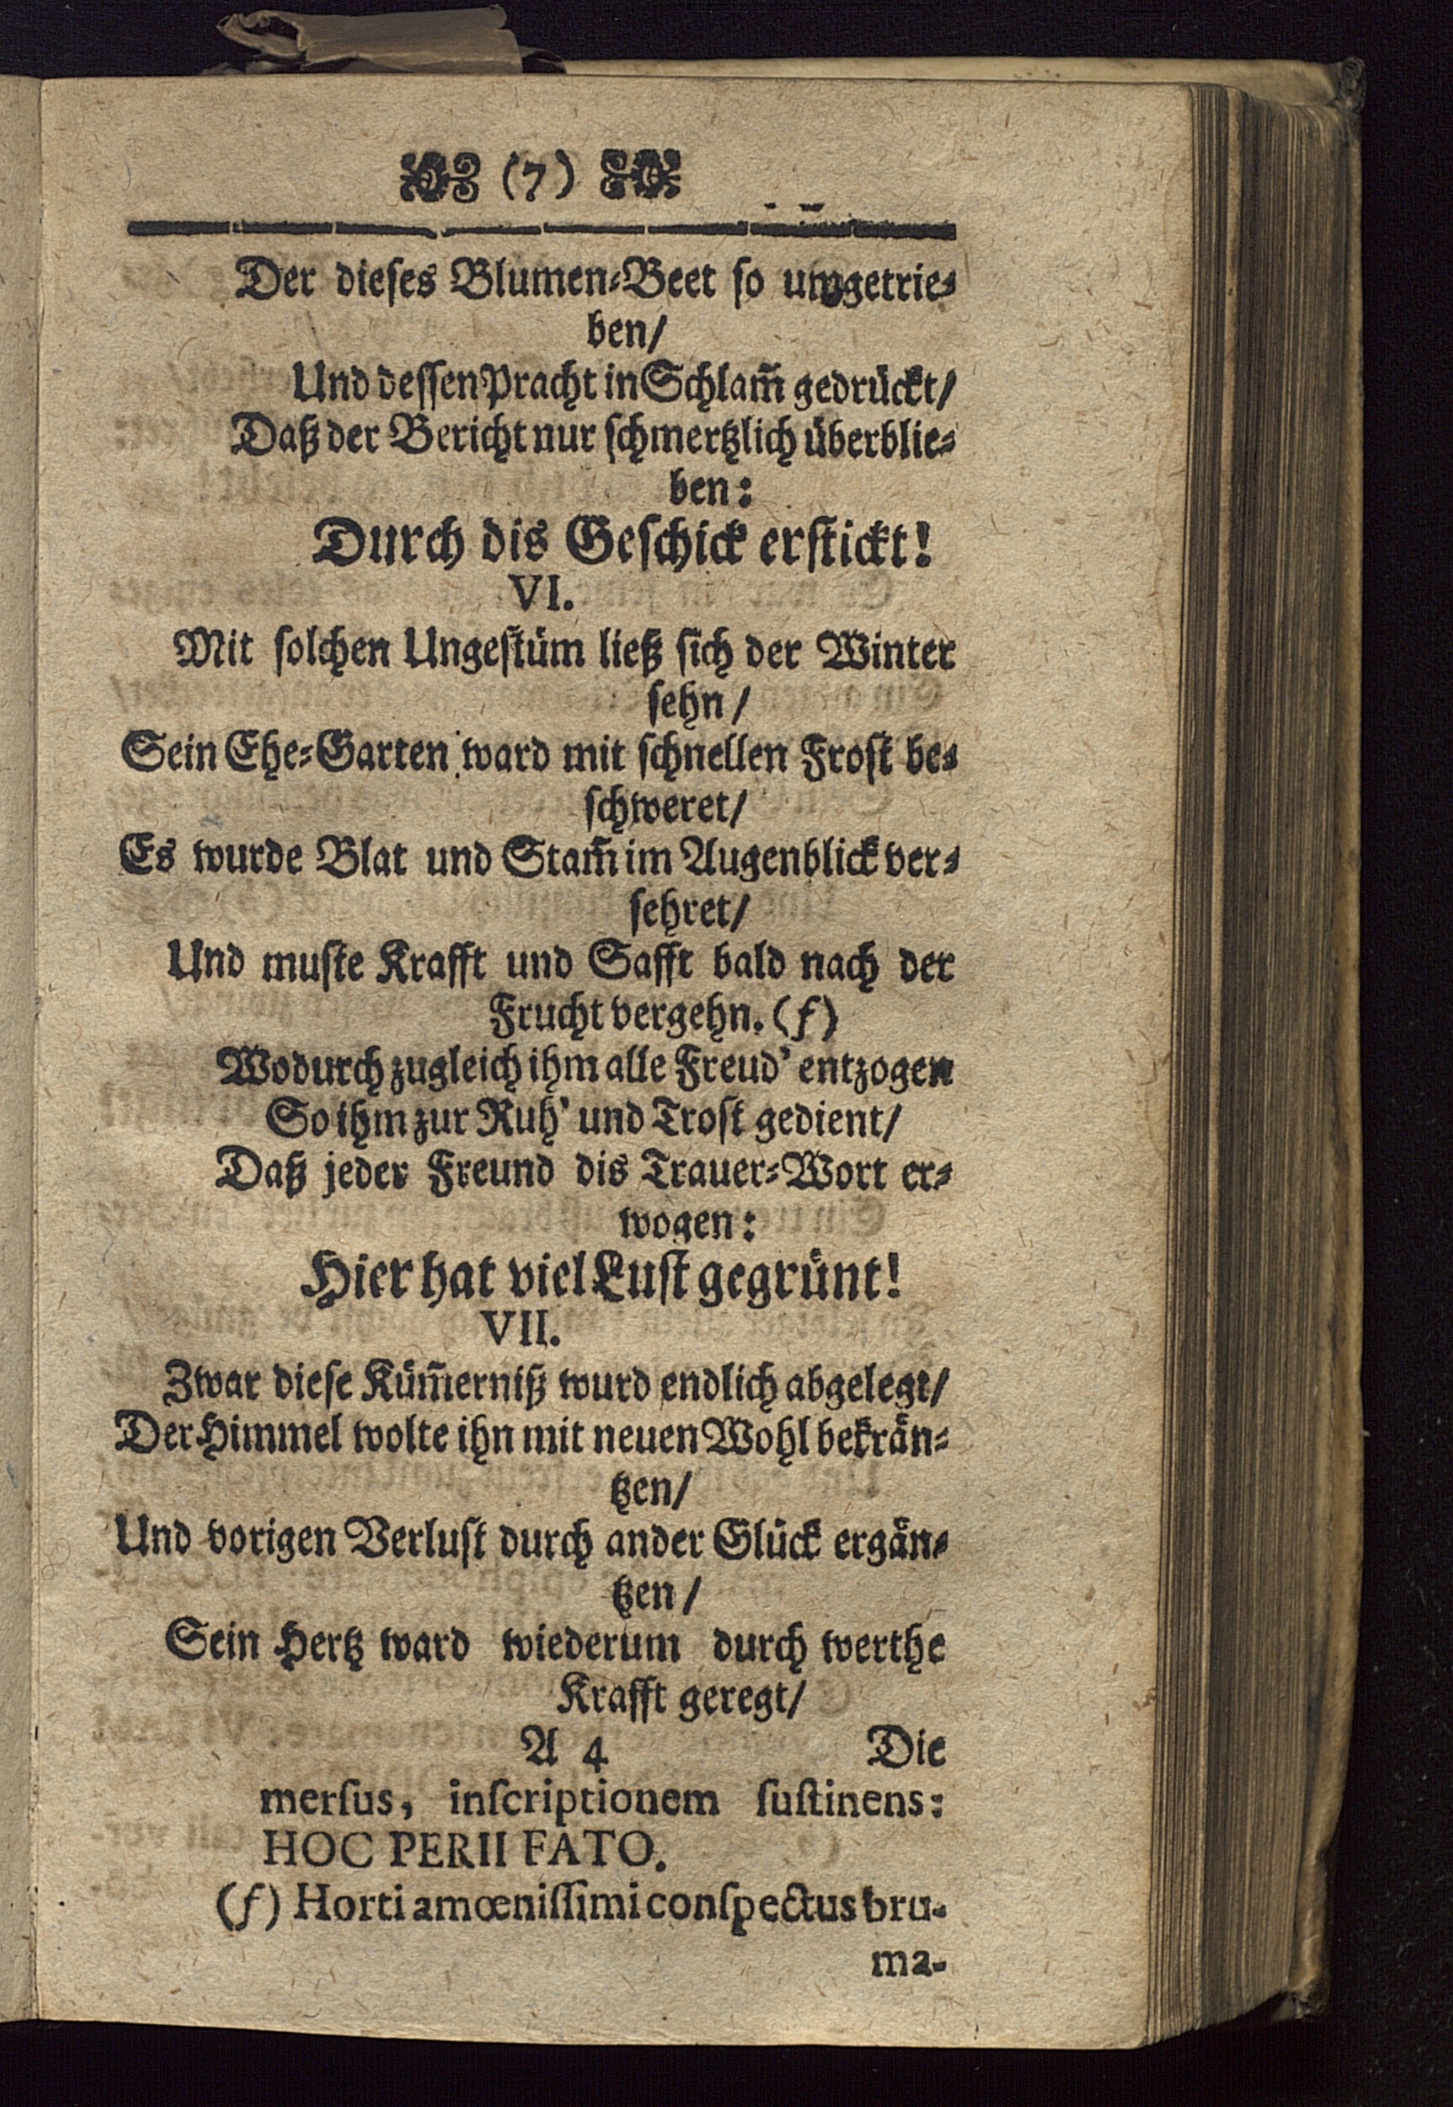 (7)
Der dieses Blumen-Beet so umgetrie-
ben/
Und dessen Pracht in Schlam̃ gedrückt/
Daß der Bericht nur schmertzlich überblie-
ben:
Durch dis Geschick erstickt!
VI.
Mit solchen Ungestüm ließ sich der Winter
sehn/
Sein Ehe-Garten ward mit schnellen Frost be-
schweret/
Es wurde Blat und Stam̃ im Augenblick ver-
sehret/
Und muste Krafft und Safft bald nach der
Frucht vergehn. (f)
Wodurch zugleich ihm alle Freud' entzogen
So ihm zur Ruh' und Trost gedient/
Daß jeder Freund dis Trauer-Wort er-
wogen:
Hier hat viel Lust gegrünt!
VII.
Zwar diese Küm̃erniß wurd endlich abgelegt/
Der Himmel wolte ihn mit neuen Wohl bekrän-
tzen/
Und vorigen Verlust durch ander Glück ergän-
tzen/
Sein Hertz ward wiederum durch werthe
Krafft geregt/
A 4 Die
mersus, inscriptionem sustinens:
HOC PERII FATO.
(f) Horti amœnissimi conspectus bru-
ma-